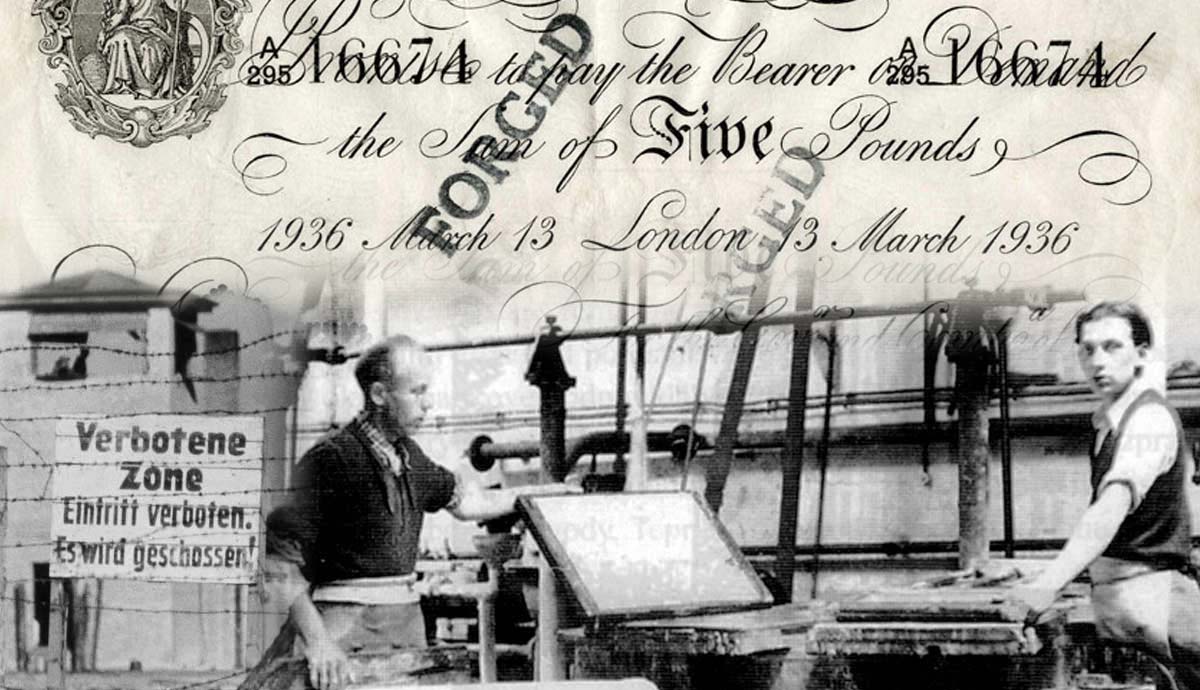 A
295 16674 A
295 16674
Promise to pay the Bearer on Demand
the Sum of Five Pounds
1936 March 13 London 13 March 1936
FORGED
FORGED
the Sum of
Pounds
Verbotene
Zone
Eintritt verboten.
Es wird geschossen!